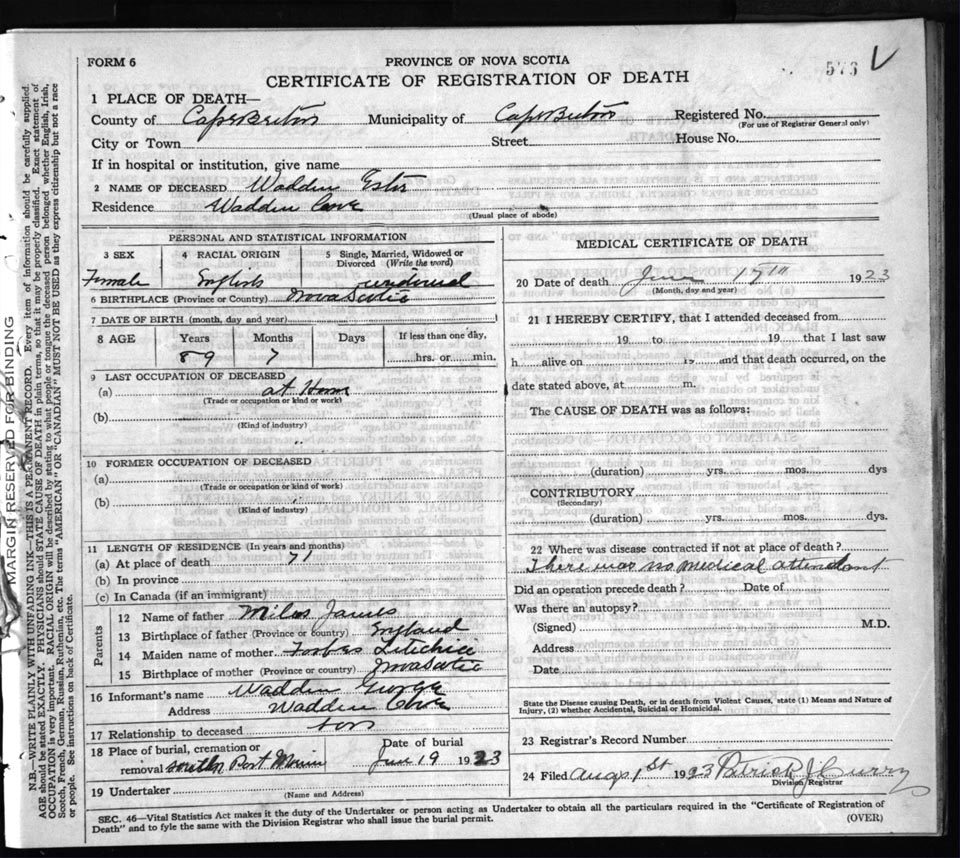 FORM 6
PROVINCE OF NOVA SCOTIA
CERTIFICATE OF REGISTRATION OF DEATH
573 V
1 PLACE OF DEATH—
County of Cape Breton Municipality of Cape Breton Registered No.
(For use of Registrar General only)
City or Town Street House No.
If in hospital or institution, give name
2 NAME OF DECEASED Wadden Ester
Residence Wadden Cove
(Usual place of abode)
PERSONAL AND STATISTICAL INFORMATION
3 SEX 4 RACIAL ORIGIN 5 Single, Married, Widowed or Divorced (Write the word)
Female English widowed
6 BIRTHPLACE (Province or Country) Nova Scotia
7 DATE OF BIRTH (month, day and year)
8 AGE Years Months Days If less than one day,
89 7 hrs. or min.
9 LAST OCCUPATION OF DECEASED
(a) at Home
(Trade or occupation or kind or work)
(b)
(Kind of industry)
10 FORMER OCCUPATION OF DECEASED
(a)
(Trade or occupation or kind of work)
(b)
(Kind of industry)
11 LENGTH OF RESIDENCE (In years and months)
(a) At place of death 71
(b) In province
(c) In Canada (if an immigrant)
Parents
12 Name of father Miles James
13 Birthplace of father (Province or country) England
14 Maiden name of mother Forbes
15 Birthplace of mother (Province or country) Nova Scotia
16 Informant's name Wadden George
Address Wadden Cove
17 Relationship to deceased son
18 Place of burial, cremation or removal South Port Morien
Date of burial Jun 19 1923
19 Undertaker
(Name and Address)
MEDICAL CERTIFICATE OF DEATH
20 Date of death June 15th 1923
(Month, day and year)
21 I HEREBY CERTIFY, that I attended deceased from
19 to 19 that I last saw
h alive on 19 and that death occurred, on the
date stated above, at m.
The CAUSE OF DEATH was as follows:
(duration) yrs. mos. dys
CONTRIBUTORY
(Secondary)
(duration) yrs. mos. dys.
22 Where was disease contracted if not at place of death?
There was no medical attendant
Did an operation precede death? Date of
Was there an autopsy?
(Signed) M.D.
Address
Date
State the Disease causing Death, or in death from Violent Causes, state (1) Means and Nature of
Injury, (2) whether Accidental, Suicidal or Homicidal.
23 Registrar's Record Number
24 Filed Augs 1st 1923 Patrick J Curry
Division Registrar
SEC. 46—Vital Statistics Act makes it the duty of the Undertaker or person acting as Undertaker to obtain all the particulars required in the "Certificate of Registration of
Death" and to fyle the same with the Division Registrar who shall issue the burial permit.
(OVER)
MARGIN RESERVED FOR BINDING
N.B.—WRITE PLAINLY WITH UNFADING INK—THIS IS A PERMANENT RECORD. Every item of information should be carefully supplied.
AGE should be stated EXACTLY. PHYSICIANS should STATE CAUSE OF DEATH in plain terms, so that it may be properly classified. Exact statement of
OCCUPATION is very important. RACIAL ORIGIN will be described by stating to what people or tongue the deceased person belonged whether English, Irish,
Scotch, French, German, Russian, Ruthenian, etc. The terms "AMERICAN" OR "CANADIAN" MUST NOT BE USED as they express citizenship but not a race
or people. See instructions on back of Certificate.